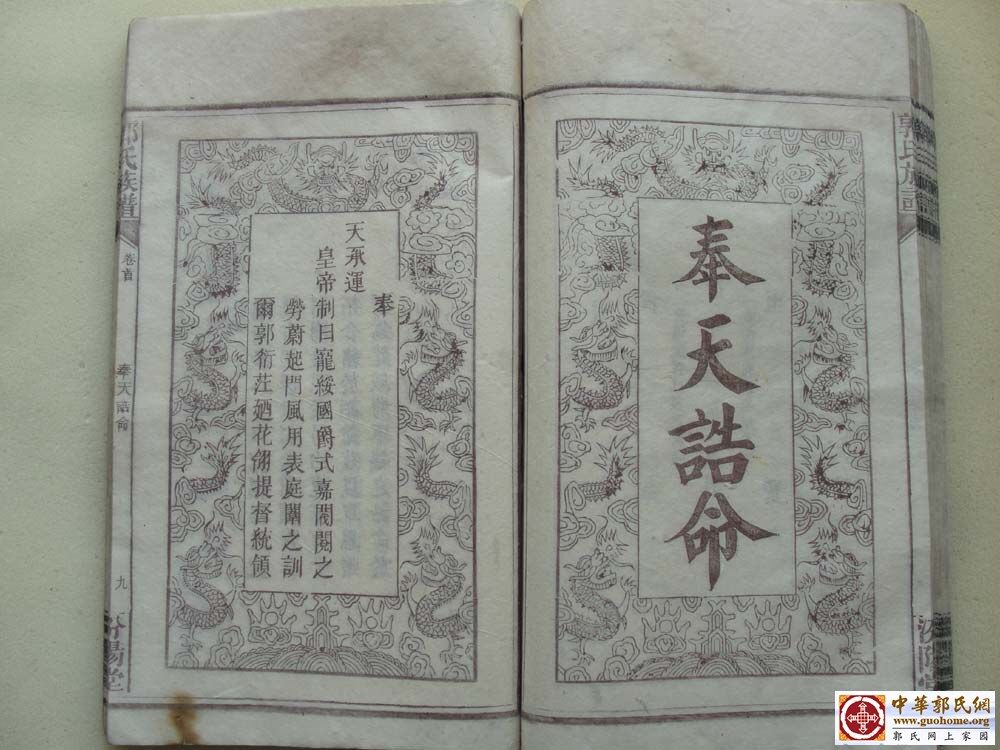 郭氏族譜
汾陽堂
奉天誥命
奉
天承運
皇帝制曰寵綏國爵式嘉閥閱之
勞蔚起門風用表庭闈之訓
爾郭衍茳廼花翎提督統領
郭氏族譜
卷首
奉天誥命
九
汾陽堂
中華郭氏網
www.guohome.org
郭氏網上家園